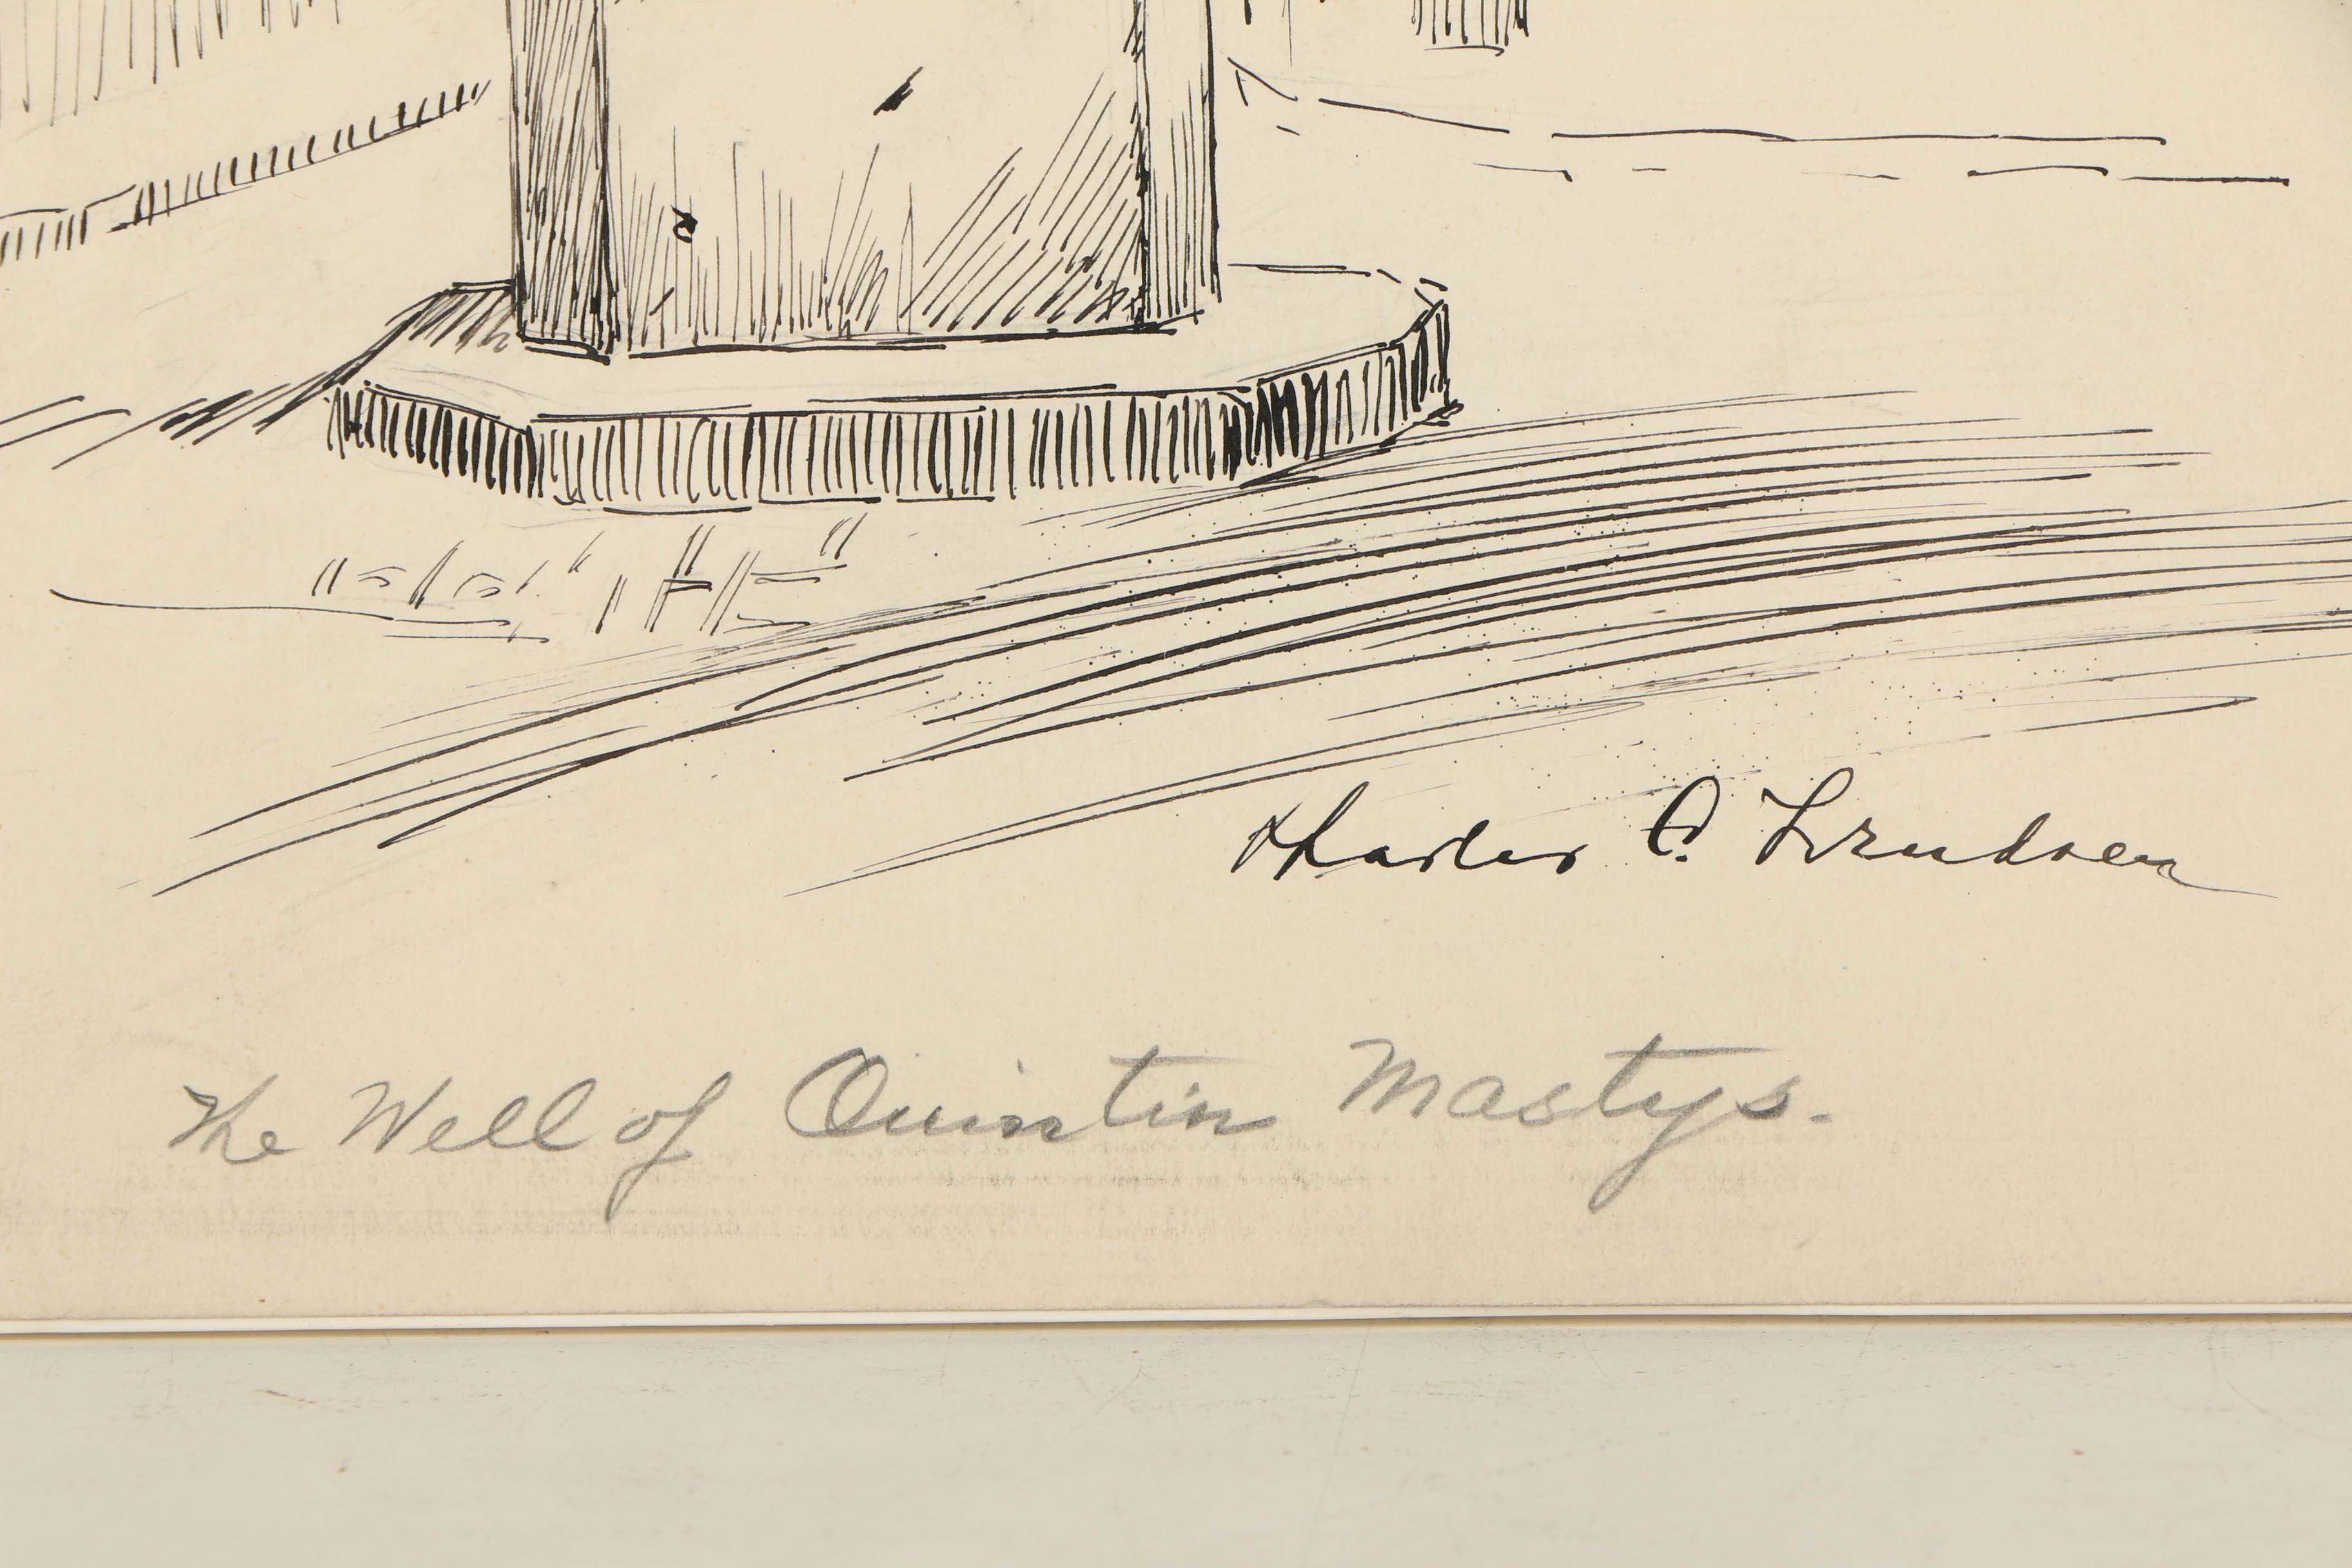 Charles C. Svendsen
The Well of Quintin Mastys.